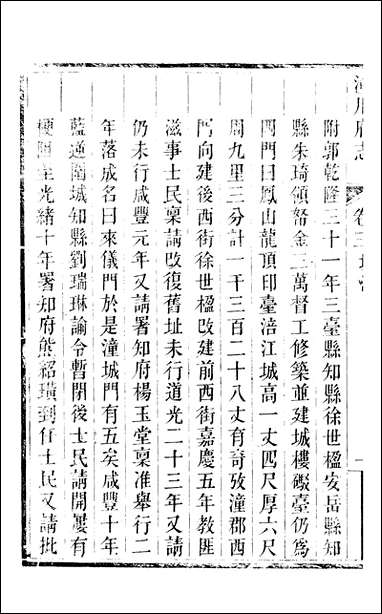 潼川府志　卷三
附郭乾隆三十一年三臺縣知縣徐世楹安岳縣知
縣朱琦領帑金三萬督工修築並建城樓礮臺仍爲
四門曰鳳山龍頂印臺涪江城高一丈四尺厚六尺
周九里三分計一千三百二十八丈有奇攷潼郡西
門向建後西街徐世楹改建前西街嘉慶五年教匪
滋事士民稟請改復舊址未行道光二十三年又請
仍未行咸豐元年又請署知府楊玉堂稟准舉行二
年落成名曰來儀門於是潼城門有五矣咸豐十年
藍逆圍城知縣劉瑞琳諭令暫閉後士民請開屢有
梗阻至光緒十年署知府熊紹璜到任士民又請批